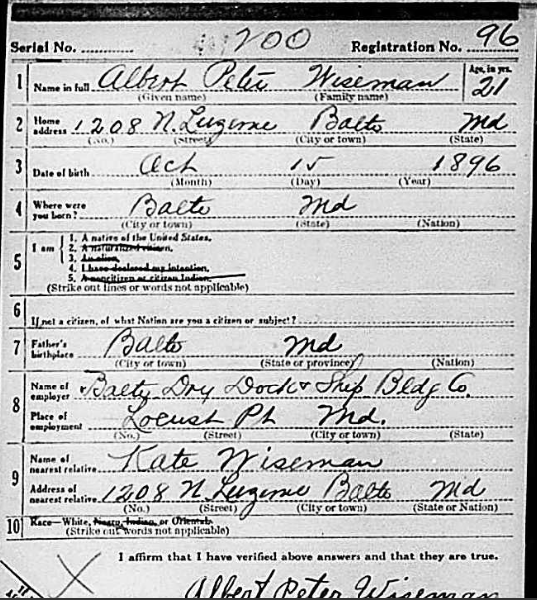 Serial No. 200 Registration No. 96
1 Name in full Albert Peter Wiseman Age, in yrs. 21
(Given name) (Family name)
2 Home address 1208 N. Luzerne Balto Md
(No.) (Street) (City or town) (State)
3 Date of birth Oct 15 1896
(Month) (Day) (Year)
4 Where were you born? Balto Md
(City or town) (State) (Nation)
5 I am
1. A native of the United States.
2. A naturalized citizen.
3. An alien.
4. I have declared my intention.
5. A noncitizen or citizen Indian.
(Strike out lines or words not applicable)
6 If not a citizen, of what Nation are you a citizen or subject?
7 Father's birthplace Balto Md
(City or town) (State or province) (Nation)
8 Name of employer Balto Dry Dock & Ship Bldg Co.
Place of employment Locust Pt Md.
(No.) (Street) (City or town) (State)
9 Name of nearest relative Kate Wiseman
Address of nearest relative 1208 N. Luzerne Balto Md
(No.) (Street) (City or town) (State or Nation)
10 Race—White, Negro, Indian, or Oriental.
(Strike out words not applicable)
I affirm that I have verified above answers and that they are true.
Albert Peter Wiseman